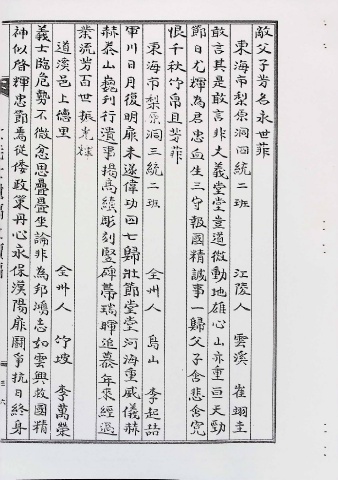 敵父子芳名永世菲
東海市梨原洞四統二班 江陵人 雲溪 崔翊圭
敢言其是敢言非大義堂堂豈道微動地雄心山亦重亘天勁
節日尤輝為君忠血生三守報國精誠事一歸父子含悲含冤
恨千秋竹帛且芳菲
東海市梨原洞三統二班 全州人 烏山 李起喆
軍川日月復明扉未遂偉功四七歸壯節堂堂河海重威儀赫
赫泰山巍刊行遺事揭高績彫刻豎碑帶瑞暉追慕年來經過
業流芳百世振光
道溪邑上德里 全州人 竹坡 李萬榮
義士臨危勢不微忿思疊疊坐論非為邦鴻志如雲興救國精
神似啓輝忠節焉從倭政策丹心永保漢陽扉鬪爭抗日終身